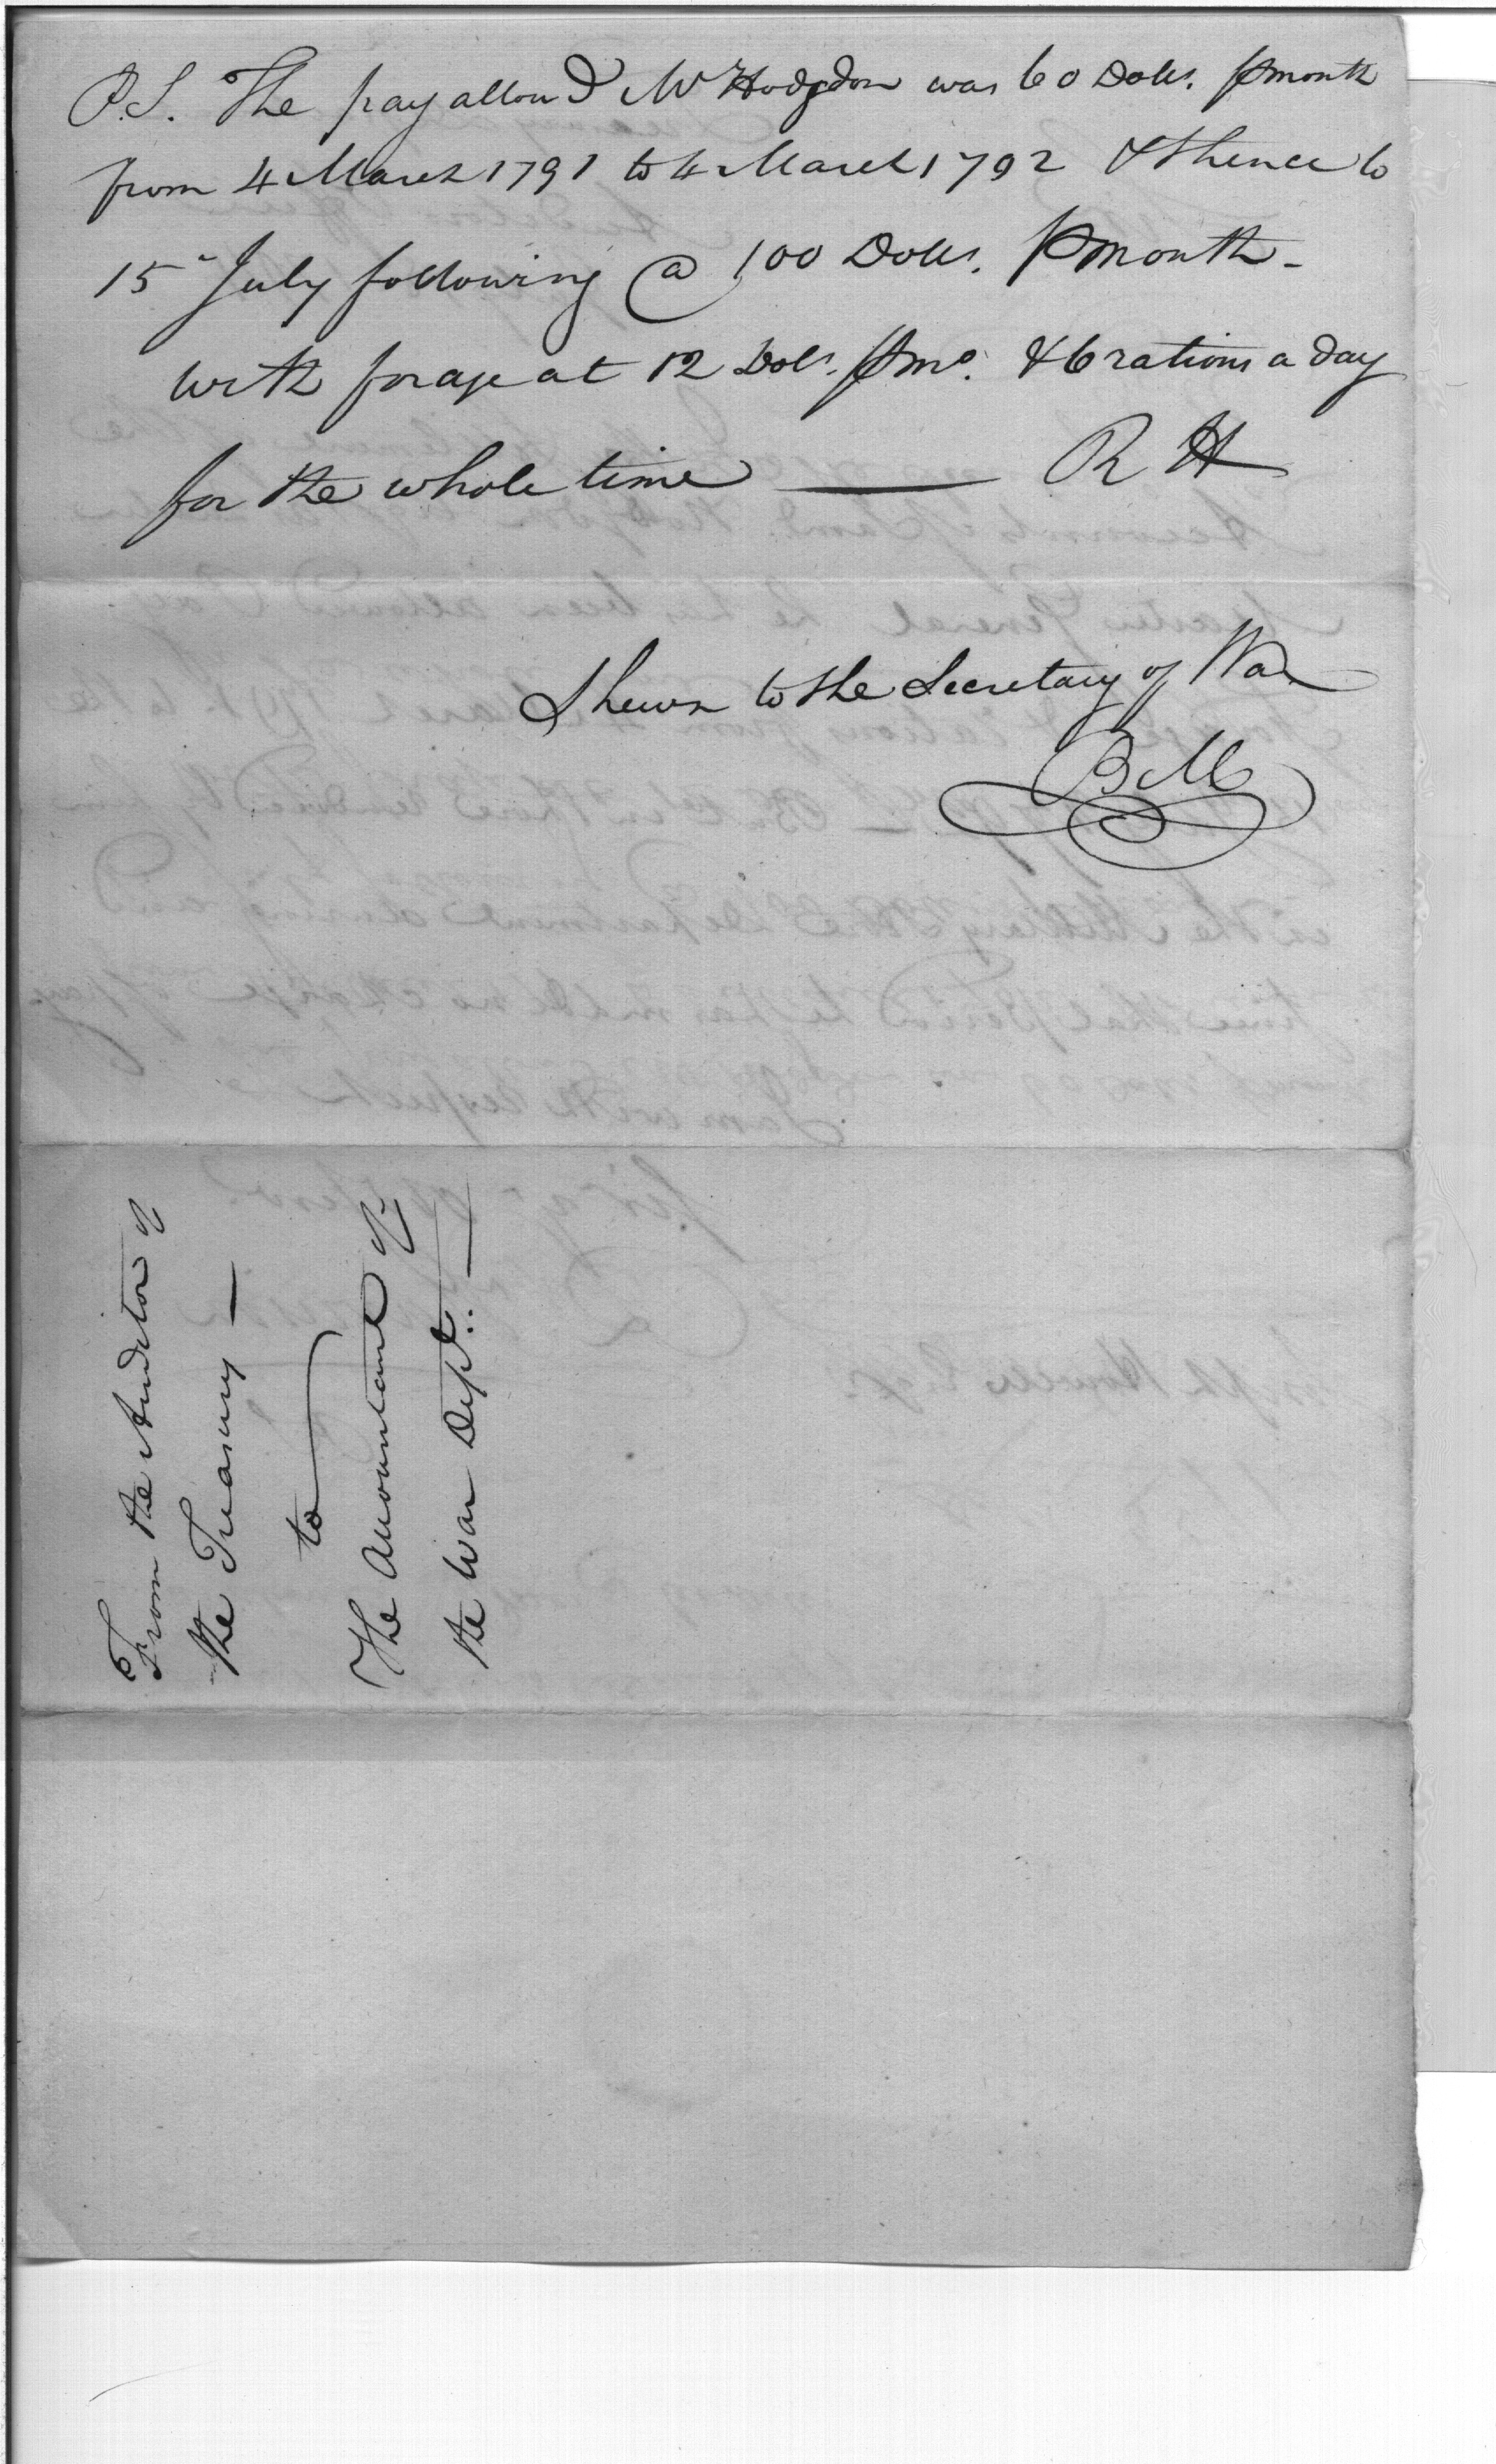 P.S. The pay allow'd Mr Hodgdon was 60 Dolls. ⅌ month
from 4 March 1791 to 4 March 1792 & thence to
15 July following @ 100 Dolls. ⅌ month -
with forage at 12 Dols. ⅌ mo. & 6 rations a day
for the whole time — R H
Shewn to the Secretary of War
B M
From the Auditor of
the Treasury —
to
The Accountant of
the War Dept. —